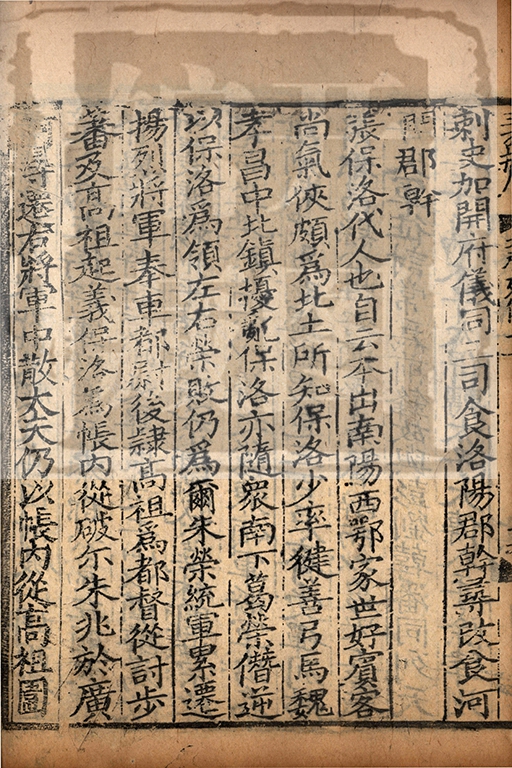 刺史加開府儀同三司食洛陽郡幹尋改食河
間郡幹
張保洛代人也自云本出南陽西鄂家世好賓客
尚氣俠頗爲北土所知保洛少率健善弓馬魏
孝昌中北鎮擾亂保洛亦隨衆南下葛榮僭逆
以保洛爲領左右榮敗仍爲爾朱榮統軍累遷
揚烈將軍奉車都尉後隷高祖爲都督從討步
蕃及高祖起義保洛爲帳内從破尒朱兆於廣
阿尋遷右將軍中散大夫仍以帳内從高祖圍